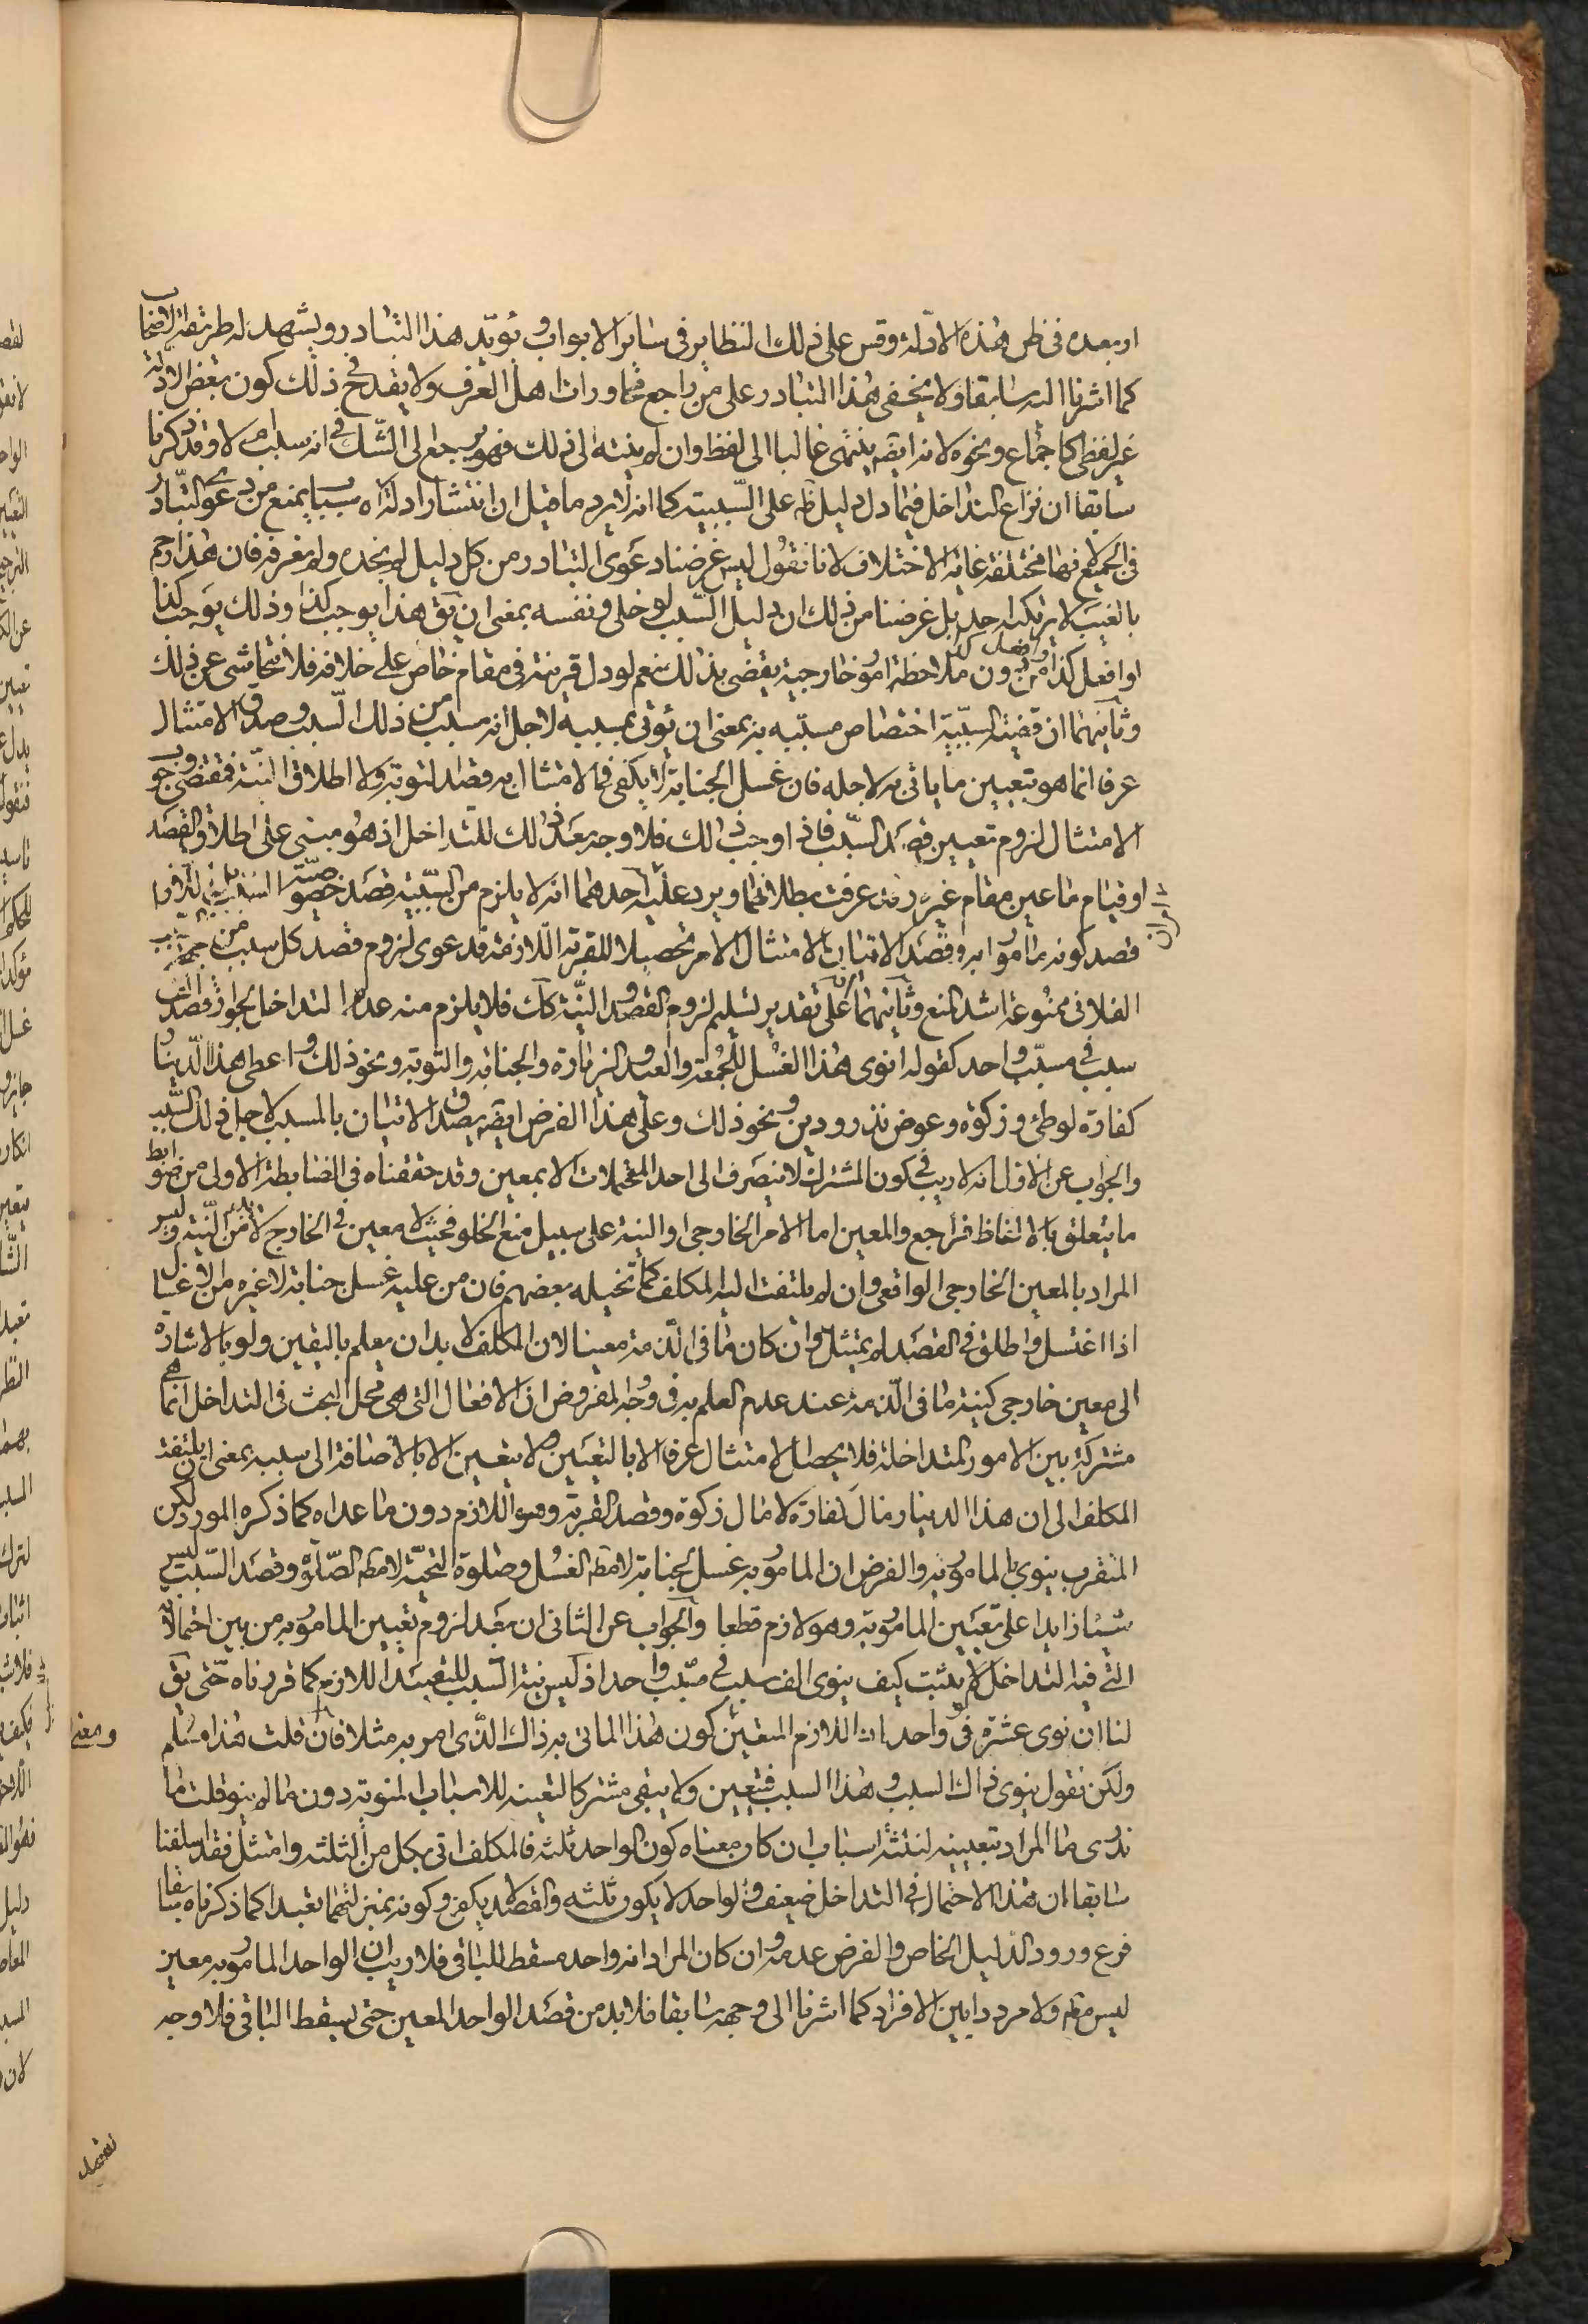 اربعده فى ظرف هذه الادلة وقس على ذلك النظاير فى ساير الابواب ويؤيد هذا التبادر ويشهد له طريقة الاصحاب
كما اشرنا اليه سابقا ولا يخفى هذا التبادر على من راجع محاورات اهل العرف ولا يقدح فى ذلك كون بعض الادلة
غير لفظى كاجماع ونحوه لانه ايضه ينتهى غالبا الى لفظ وان لم ينته الى ذلك فهو يرجع الى الشك فى انه سبب ام لا وقد ذكرنا
سابقا ان نزاع التداخل فيما دل دليل ظه على السببية كما انه لا يرد ما قيل ان انتشار ادلة الاسباب يمنع من دعوى التبادر
فى الجميع لانها مختلفة غاية الاختلاف لانا نقول ليس غرضنا دعوى التبادر من كل دليل لم نجده ولم نعرفه فان هذا رجم
بالغيب لا يرتكبه احد بل غرضنا من ذلك ان دليل السبب لو خلى ونفسه بمعنى ان يق هذا يوجب كذا وذلك يوجب كذا
او افعل كذا من دون ملاحظة امور خارجية يقضى بذلك نعم لو دل قرينة فى مقام خاص على خلافه فلا نتحاشى عن ذلك
وثانيهما ان قضية السببية اختصاص مسببه به بمعنى ان يؤتى بمسببه لاجل انه مسبب من ذلك السبب وصدق الامتثال
عرفا انما هو بتعيين ما ياتى به لاجله فان غسل الجنابة لا يكفى فى الامتثال به قصد التوبة ولا اطلاق النية فمقتضى وجوب
الامتثال لزوم تعيين قصد السبب فاذا وجب ذلك فلا وجه بعد ذلك للتداخل اذ هو مبنى على اطلاق القصد
او قيام ما عين مقام غيره وقد عرفت بطلانهما ويرد عليه احدهما انه لا يلزم من السببية قصد خصوصية السبب بل اللازم
قصد كونه مأمورا به وقصد الاتيان لامتثال الامر تحصيلا للقربة اللازمة فدعوى لزوم قصد كل سبب من جهة السبب
الفلانى ممنوعة اشد المنع وثانيهما ان على تقدير تسليم لزوم القصد والنية كك فلا يلزم منه عدم التداخل لجواز قصد الف
سبب فى مسبب واحد كقوله انوى هذا الغسل للجمعة والعيد والزيارة والجنابة والتوبة ونحو ذلك واعطى هذا الدينار
كفارة لوطئ وزكوة وعوض نذر ودين ونحو ذلك وعلى هذا الفرض ايضه يصدق الاتيان بالمسبب لاجل ذلك السبب
والجواب عن الاول انه لا ريب فى كون المشترك لا ينصرف الى احد المحتملات الا بمعين وقد حققناه فى الضابطة الاولى من ضوابط
ما يتعلق بالالفاظ فراجع والمعين اما الامر الخارجى او النية على سبيل منع الخلو فحيث لا معين فى الخارج لابد من النية وليس
المراد بالمعين الخارجى الواقعى وان لم يلتفت اليه المكلف كما تخيله بعضهم فان من عليه غسل جنابة لا غيره من الاغسال
اذا اغتسل واطلق فى القصد لم يمتثل وان كان ما فى الذمة معينا لان المكلف لا بد ان يعلم باليقين ولو بالاشارة
الى معين خارجى كنية ما فى الذمة عند عدم العلم به فى وجه المفروض ان الافعال التى هى محل البحث فى التداخل انما هى
مشتركة بين الامور المتداخلة فلا يحصل الامتثال عرفا الا بالتعيين ولا يتعين الا بالاضافة الى سببه بمعنى ان يلتفت
المكلف الى ان هذا الدينار مال كفارة لا مال زكوة وقصد القربة وهو اللازم دون ما عداه كما ذكره المورد لكن
المتقرب ينوى المامور به والفرض ان المامور به غسل الجنابة لا مطلق الغسل وصلوة التحية لا مطلق الصلوة وقصد السبب ليس
شيئا زايدا على تعيين المامور به وهو لازم قطعا والجواب عن الثانى ان بعد لزوم تعيين المامور به من بين احتمالاته
التى فيه التداخل لم يثبت كيف ينوى الف سبب فى مسبب واحد اذ ليس نية السبب للتعبد اللازم كما قررناه حتى يق
لنا ان نوى عشرة فى واحد بل اللازم المتعين كون هذا الماتى به ذاك الذى امر به مثلا فان قلت هذا مسلم
ولكن نقول ينوى ذاك السبب وهذا السبب فيتعين ولا يبقى مشتركا لتعينه للاسباب المنوية دون ما لم ينو قلت ما
ندرى ما المراد بتعيينه لثلثة اسباب ان كان معناه كون الواحد ثلثة فالمكلف اتى بكل من الثلثة وامتثل فقد اسلفنا
سابقا ان هذا الاحتمال فى التداخل ضعيف والواحد لا يكون ثلثه والقصد لا يكفى وكونه بمنزلتهما تعبدا كما ذكرناه سابقا
فرع ورود الدليل الخاص والفرض عدمه وان كان المراد انه واحد مسقط للباقى فلا ريب ان الواحد المامور به معين
ليس مبهم ولا مرددا بين الافراد كما اشرنا الى وجهه سابقا فلا بد من قصد الواحد المعين حتى يسقط الباقى فلا وجه